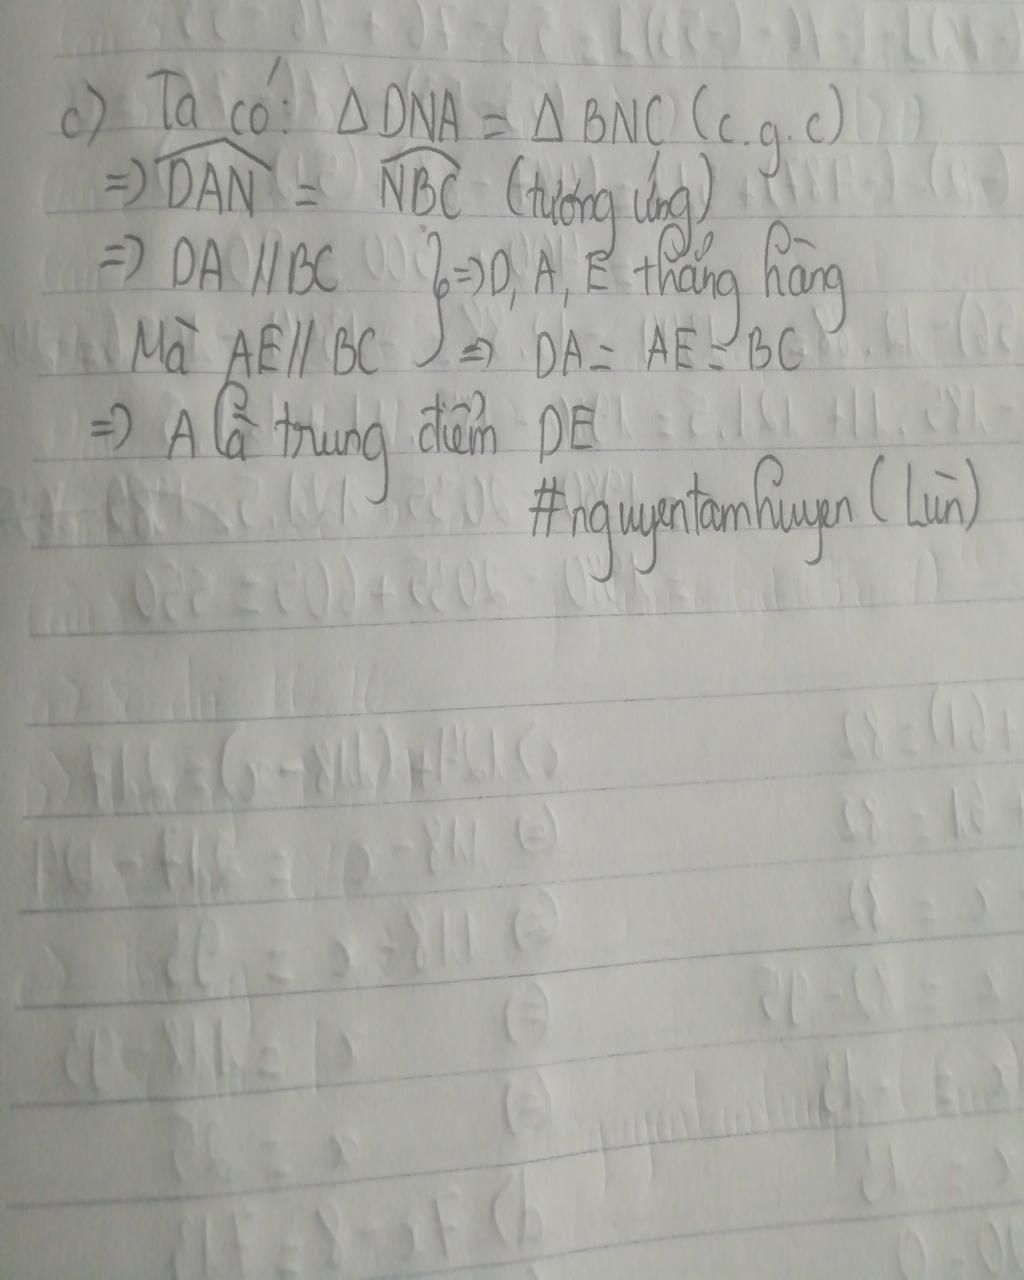 c) Ta có: Δ DNA = Δ BNC (c.g.c)
=> DAN = NBC (tương ứng)
=> DA // BC } => D, A, E thẳng hàng
Mà AE // BC => DA = AE = BC
=> A là trung điểm DE
#nguyentamhuyen (Lùn)